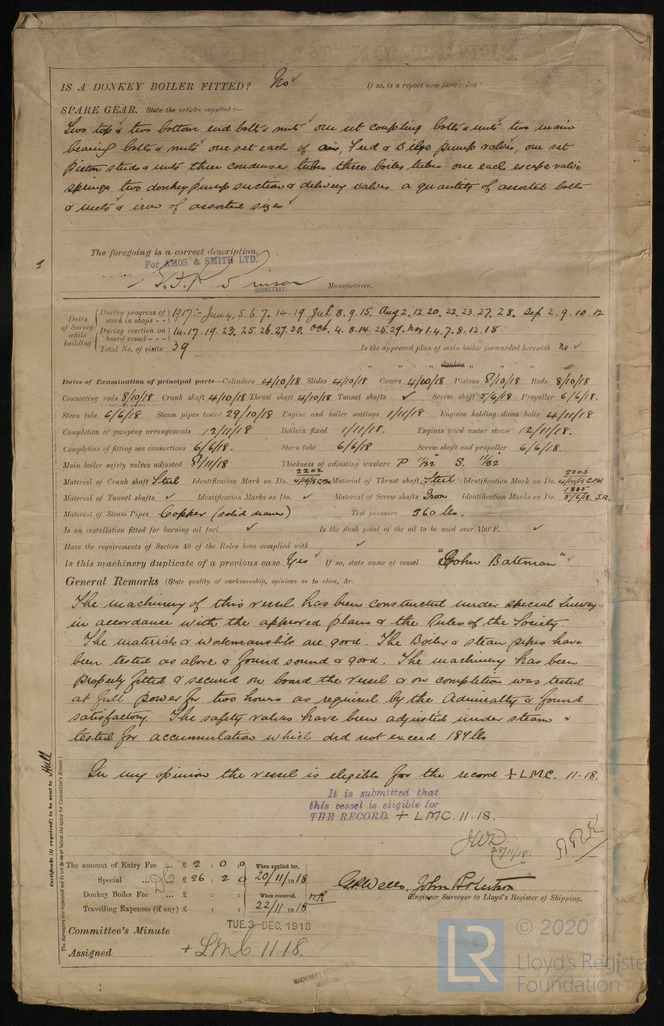 IS A DONKEY BOILER FITTED? No If so, is a report now forwarded?
SPARE GEAR. State the articles supplied:—
Two top & two bottom end bolts & nuts one set coupling bolts & nuts two main
bearing bolts & nuts one set each of air, Feed & Bilge pump valves, one set
Piston studs & nuts three condenser tubes three boiler tubes one each escape valve
springs two donkey pump suction & delivery valves a quantity of assorted bolts
& nuts & iron of assorted sizes
The foregoing is a correct description,
For AMOS & SMITH LTD.
SECRETARY Manufacturer.
Dates of Survey while building
During progress of work in shops - - 1917:- June 4. 5. 6. 7. 14. 19 Jul 8. 9. 15. Aug 2. 12. 20. 22. 23. 27. 28. Sep 2. 9. 10. 12
During erection on board vessel - - - 14. 17. 19. 23. 25. 26. 27. 30. Oct. 4. 8. 14. 25. 29. Nov 1. 4. 7. 8. 12. 18.
Total No. of visits 39 Is the approved plan of main boiler forwarded herewith no
" " " donkey " " "
Dates of Examination of principal parts—Cylinders 4/10/18 Slides 4/10/18 Covers 4/10/18 Pistons 8/10/18 Rods 8/10/18
Connecting rods 8/10/18 Crank shaft 4/10/18 Thrust shaft 4/10/18 Tunnel shafts ✓ Screw shaft 5/6/18 Propeller 6/6/18.
Stern tube 6/6/18. Steam pipes tested 29/10/18 Engine and boiler seatings 1/11/18. Engines holding down bolts 4/11/18
Completion of pumping arrangements 12/11/18 Boilers fixed 1/11/18. Engines tried under steam 12/11/18.
Completion of fitting sea connections 6/6/18. Stern tube 6/6/18 Screw shaft and propeller 6/6/18.
Main boiler safety valves adjusted 8/11/18 Thickness of adjusting washers P 11/32" S. 11/32"
Material of Crank shaft Steel Identification Mark on Do. 2202 4/10/18 Material of Thrust shaft Steel Identification Mark on Do. 2205 4/10/18
Material of Tunnel shafts ✓ Identification Marks on Do. ✓ Material of Screw shafts Iron Identification Marks on Do. 1885 5/6/18. J.R.
Material of Steam Pipes Copper (solid drawn) Test pressure 360 lbs.
Is an installation fitted for burning oil fuel ✓ Is the flash point of the oil to be used over 150°F. ✓
Have the requirements of Section 49 of the Rules been complied with ✓
Is this machinery duplicate of a previous case Yes If so, state name of vessel "John Bateman"
General Remarks (State quality of workmanship, opinions as to class, &c.
The machinery of this vessel has been constructed under special Survey
in accordance with the approved plans & the Rules of the Society.
The materials & workmanship are good. The Boiler & steam pipes have
been tested as above & found sound & good. The machinery has been
properly fitted & secured on board the vessel & on completion was tested
at full power for two hours as required by the Admiralty & found
satisfactory. The safety valves have been adjusted under steam &
tested for accumulation which did not exceed 184 lbs
In my opinion the vessel is eligible for the record + LMC. 11.18.
It is submitted that
this vessel is eligible for
THE RECORD. + LMC. 11.18.
JWD
27/11/18.
Certificate (if required) to be sent to Hull
The Surveyors are requested not to write on or below the space for Committee's Minute.
The amount of Entry Fee .. £ 2 : 0 : 0 When applied for,
Special ... £ 26 : 2 : 0 20/11/1918
Donkey Boiler Fee ... £ : : When received,
Travelling Expenses (if any) £ : : 22/11/1918
G.P. Wells. John Robertson
Engineer Surveyor to Lloyd's Register of Shipping.
Committee's Minute TUE. 3 DEC. 1918
Assigned + LMC 11.18.
© 2020
LR
Lloyd's Register
Foundation